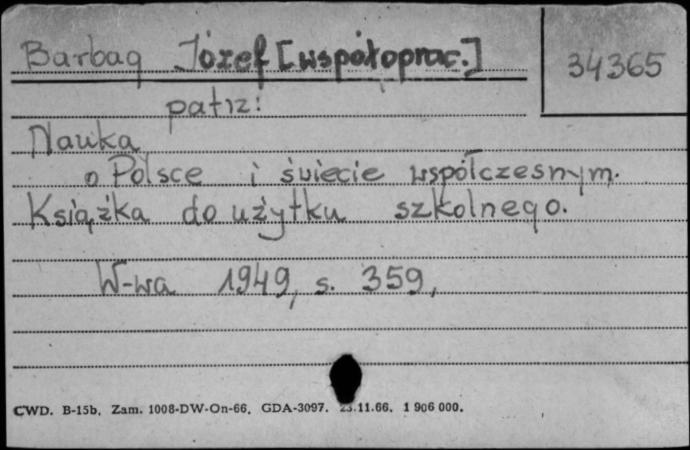 Barbag Józef [współoprac.]
34365
patrz:
Nauka
o Polsce i świecie współczesnym.
Książka do użytku szkolnego.
W-wa 1949, s. 359,
CWD. B-15b, Zam. 1008-DW-On-66. GDA-3097. 23.11.66. 1 906 000.